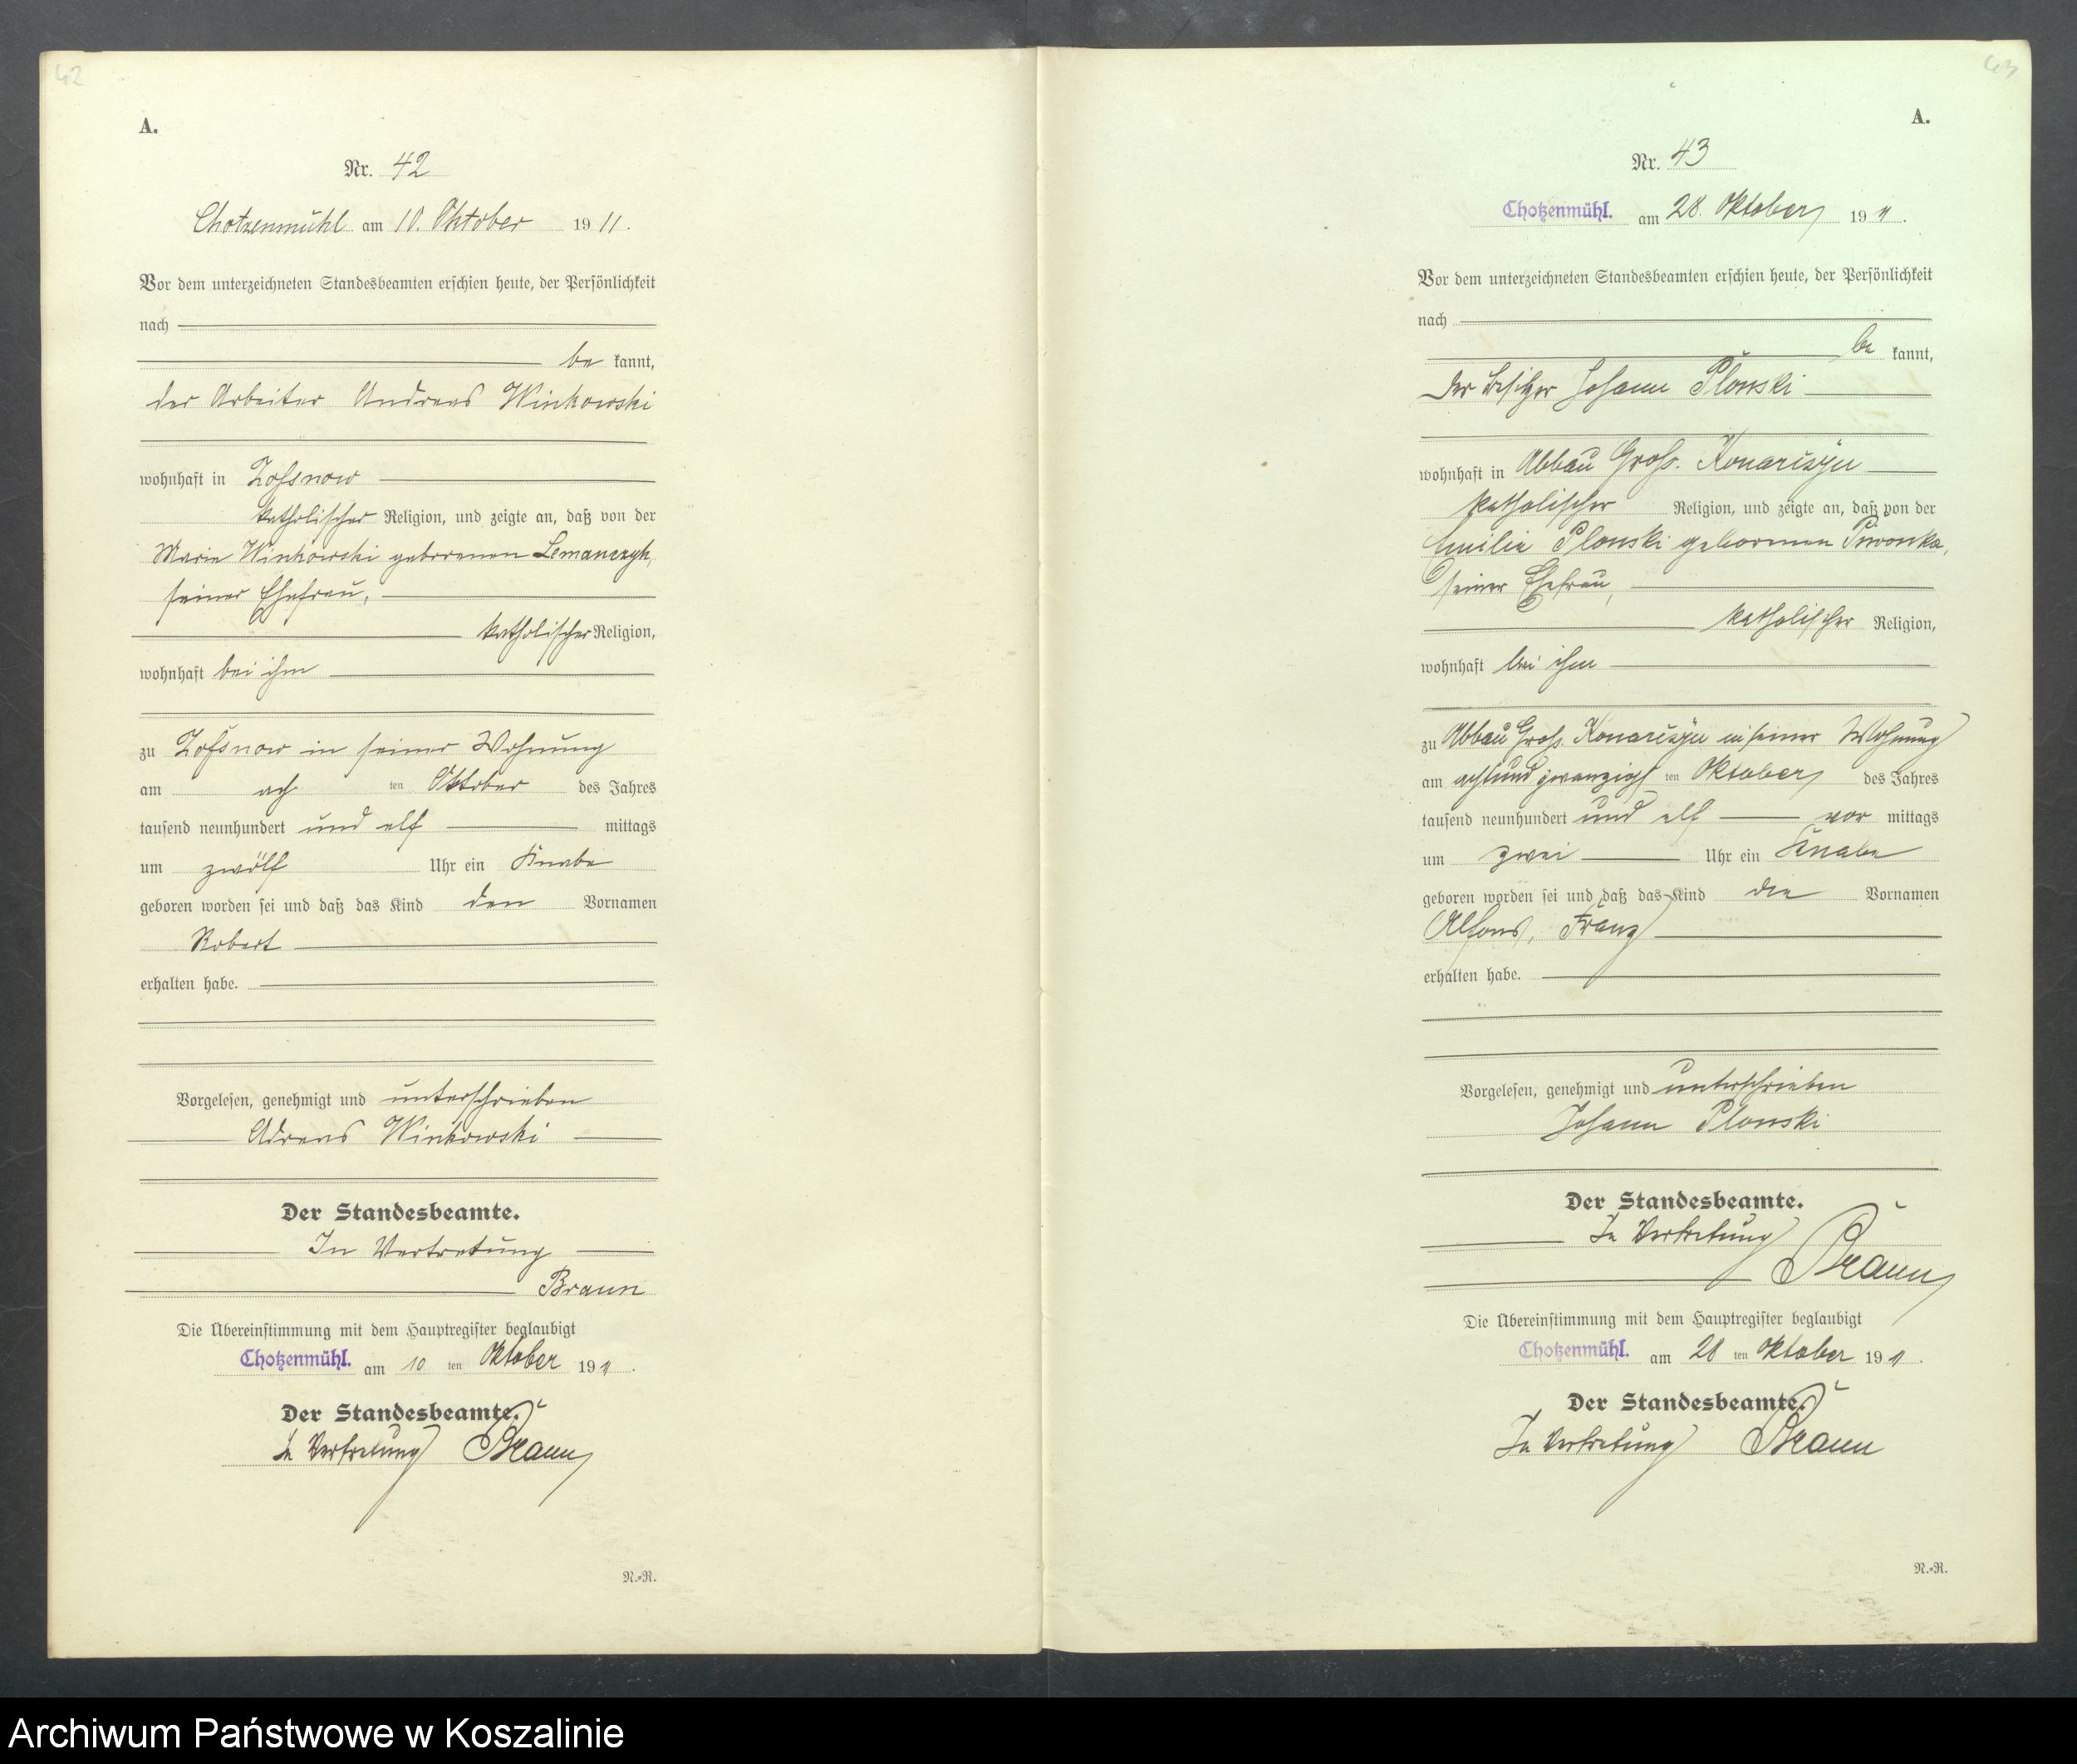 42
A.
Nr. 42
Chotzenmühl am 10. Oktober 1911.
Vor dem unterzeichneten Standesbeamten erschien heute, der Persönlichkeit
nach
be kannt,
der Arbeiter Andreas Winkowski
wohnhaft in Zofsnow
katholischer Religion, und zeigte an, daß von der
Marie Winkowski geborenen Lemanczyk,
seiner Ehefrau,
katholischer Religion,
wohnhaft bei ihm
zu Zofsnow in seiner Wohnung
am ach ten Oktober des Jahres
tausend neunhundert und elf mittags
um zwölf Uhr ein Knabe
geboren worden sei und daß das Kind den Vornamen
Robert
erhalten habe.
Vorgelesen, genehmigt und unterschrieben
Adreas Winkowski
Der Standesbeamte.
In Vertretung
Braun
Die Übereinstimmung mit dem Hauptregister beglaubigt
Chotzenmühl. am 10 ten Oktober 1911.
Der Standesbeamte.
In Vertretung Braun
N.=R.
43
A.
Nr. 43
Chotzenmühl. am 28. Oktober 1911.
Vor dem unterzeichneten Standesbeamten erschien heute, der Persönlichkeit
nach
be kannt,
der Besitzer Johann Plonski
wohnhaft in Abbau Groß. Konarczyn
katholischer Religion, und zeigte an, daß von der
Emilie Plonski geborenen Piwonka,
seiner Ehefrau,
katholischer Religion,
wohnhaft bei ihm
zu Abbau Groß. Konarczyn in seiner Wohnung
am achtundzwanzigs ten Oktober des Jahres
tausend neunhundert und elf vor mittags
um zwei Uhr ein Knabe
geboren worden sei und daß das Kind die Vornamen
Alfons, Franz
erhalten habe.
Vorgelesen, genehmigt und unterschrieben
Johann Plonski
Der Standesbeamte.
In Vertretung
Braun
Die Übereinstimmung mit dem Hauptregister beglaubigt
Chotzenmühl. am 28 ten Oktober 1911.
Der Standesbeamte.
In Vertretung Braun
N.=R.
Archiwum Państwowe w Koszalinie